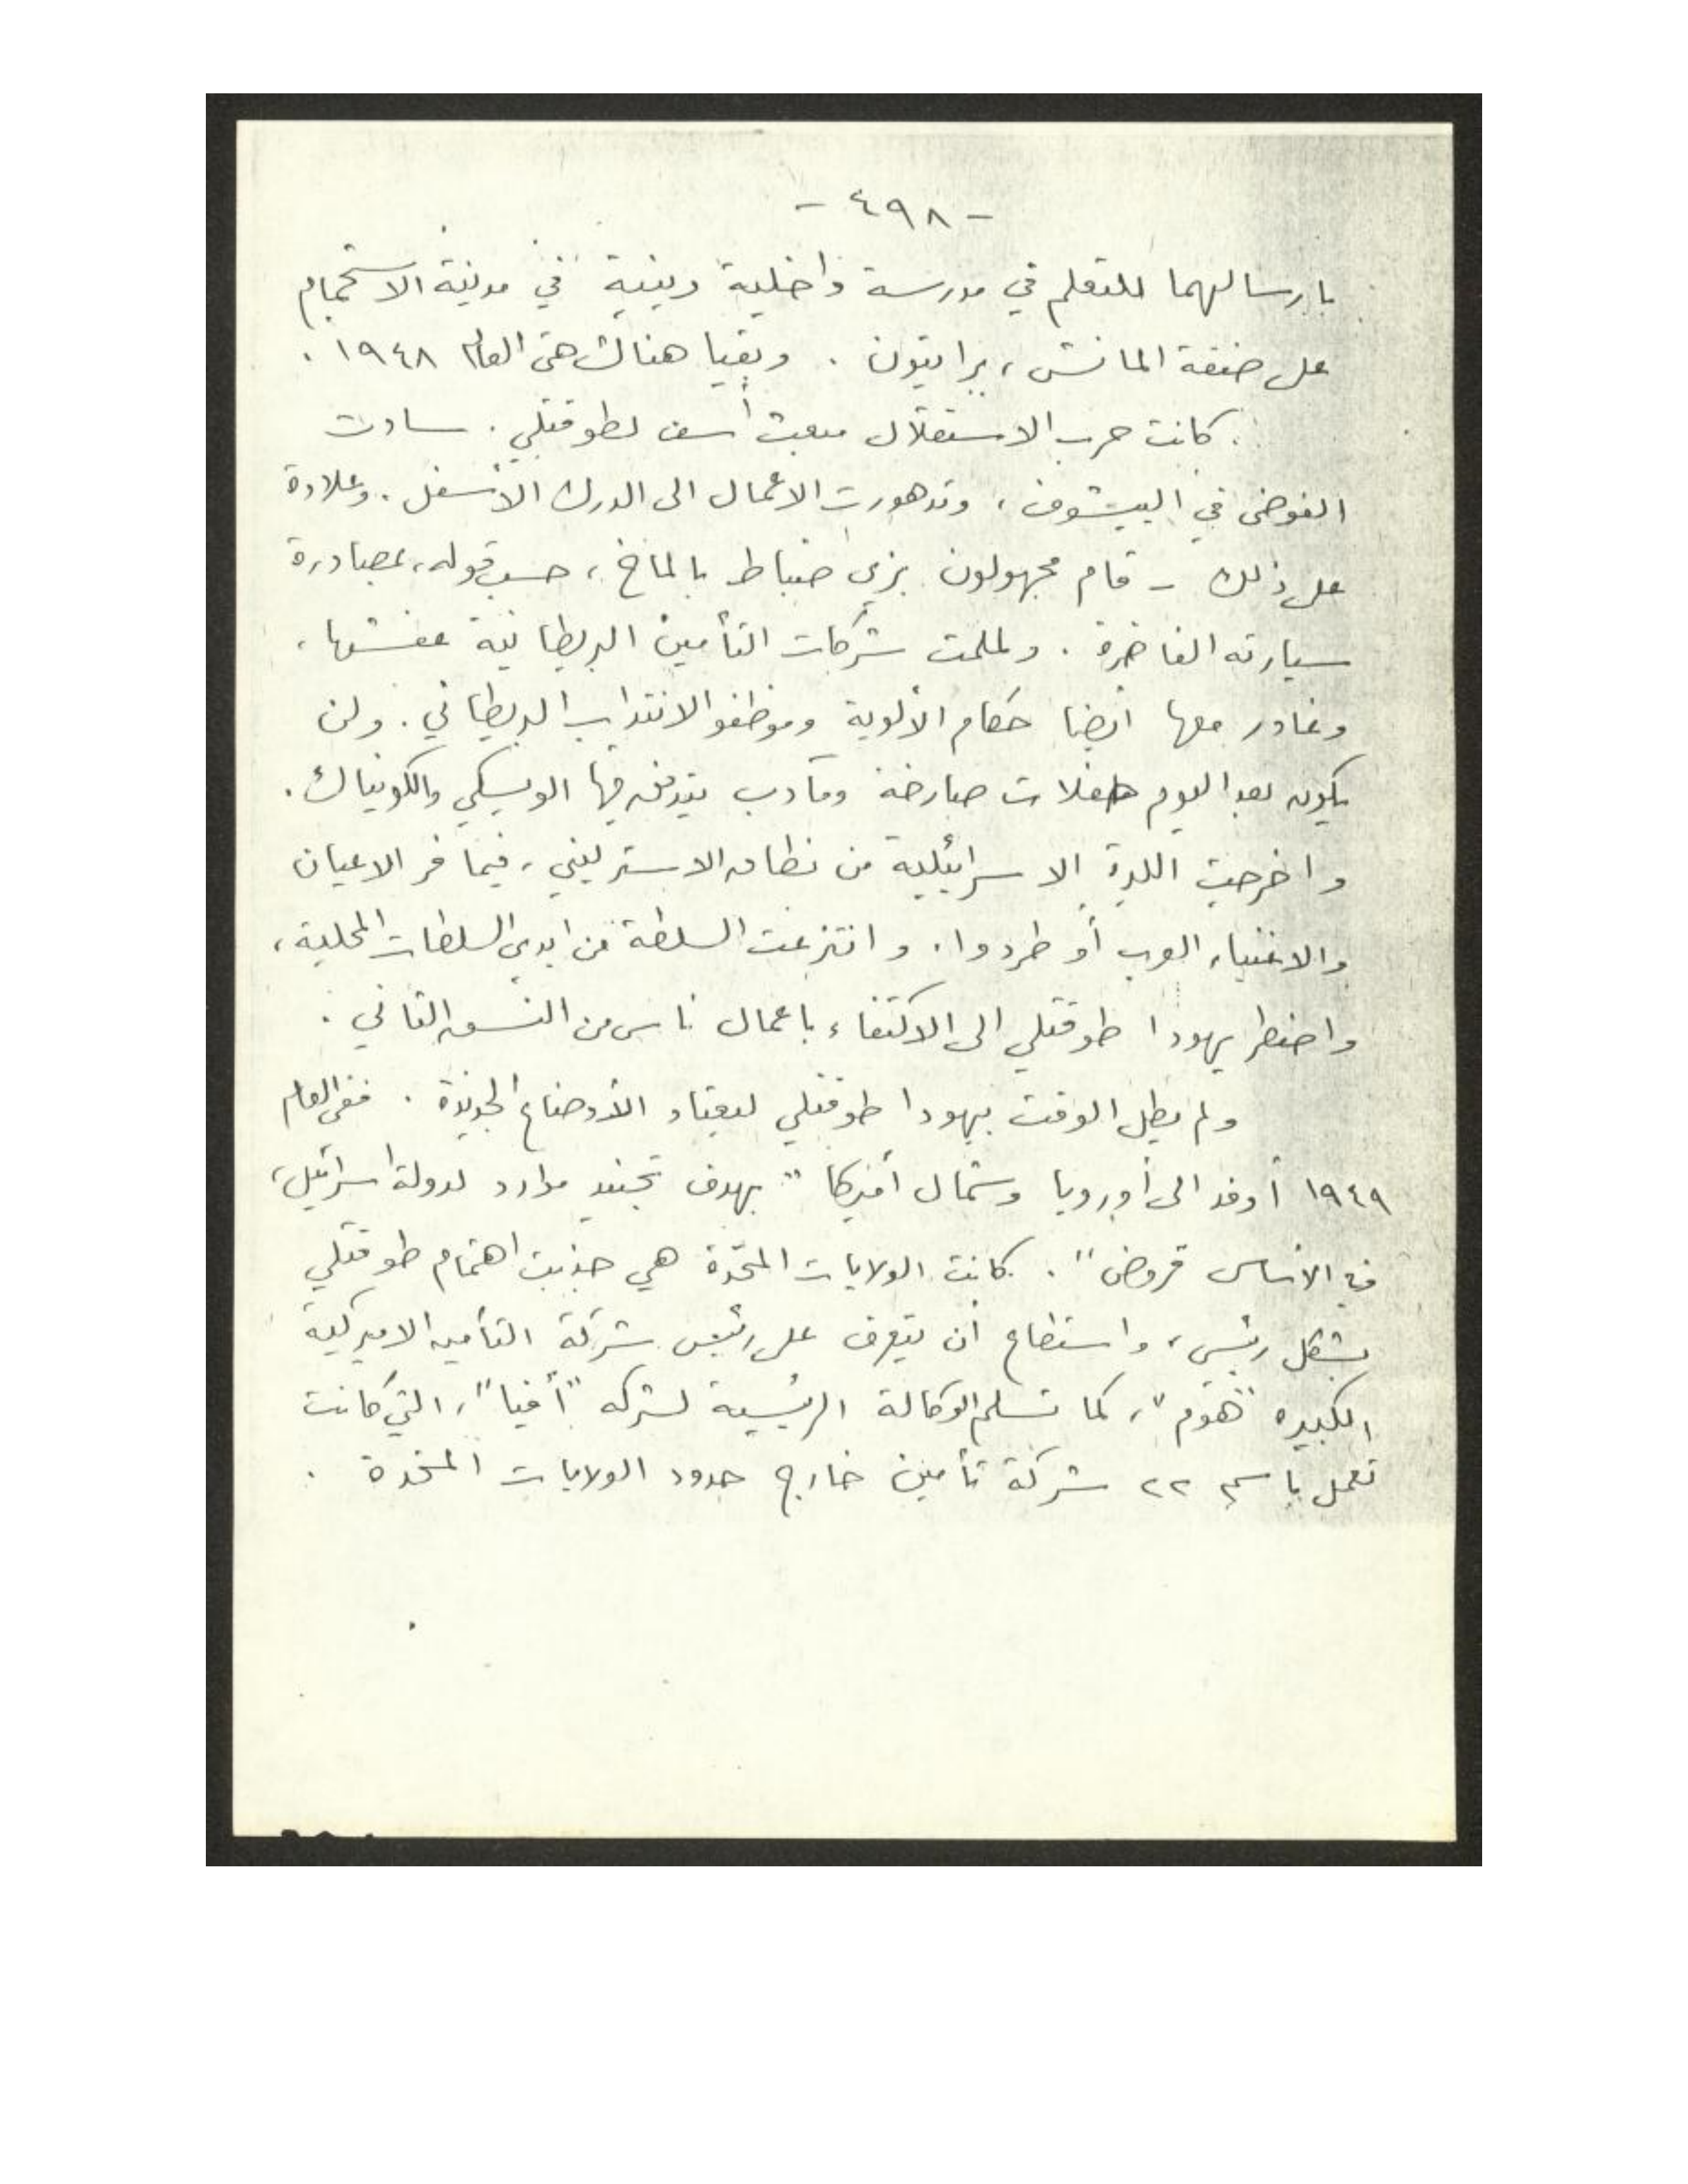 - ٤٩٨ -
بارسالهما للتعلم في مدرسة داخلية دينية في مدينة الاستجمام
على ضفة المانش، برايتون . وبقيا هناك حتى العام ١٩٤٨ .
كانت حرب الاستقلال مبعث أسف لطوقتلي . سادت
الفوضى في الييشوف، وتدهورت الاعمال الى الدرك الأسفل . وعلاوة
على ذلك - قام مجهولون بزي ضباط بالماخ ، حسب قوله، بمصادرة
سيارته الفاخرة . ولملمت شركات التأمين البريطانية عفشها،
وغادر معها ايضا حكام الألوية وموظفو الانتداب البريطاني . ولن
يكون بعد اليوم حفلات صارخة ومآدب يتدفق فيها الويسكي والكونياك .
واخرجت الليرة الاسرائيلية من نطاق الاسترليني، فيما فر الاعيان
والاغنياء العرب أو طردوا . وانتزعت السلطة من ايدي السلطات المحلية،
واضطر يهودا طوقتلي الى الاكتفاء باعمال ناس من النسق الثاني .
ولم يطل الوقت بيهودا طوقتلي ليعتاد الأوضاع الجديدة . ففي العام
١٩٤٩ أوفد الى أوروبا وشمال أفريكا " بهدف تجنيد موارد لدولة اسرائيل،
في الأساس قروض" . كانت الولايات المتحدة هي جذبت اهتمام طوقتلي
بشكل رئيسي، واستطاع أن يتعرف على رئيس شركة التأمين الاميركية
الكبيره "هوم"، كما تسلم الوكالة الرئيسية لشركه "أفيا"، التي كانت
تعمل باسم ٢٢ شركة تأمين خارج حدود الولايات المتحدة .